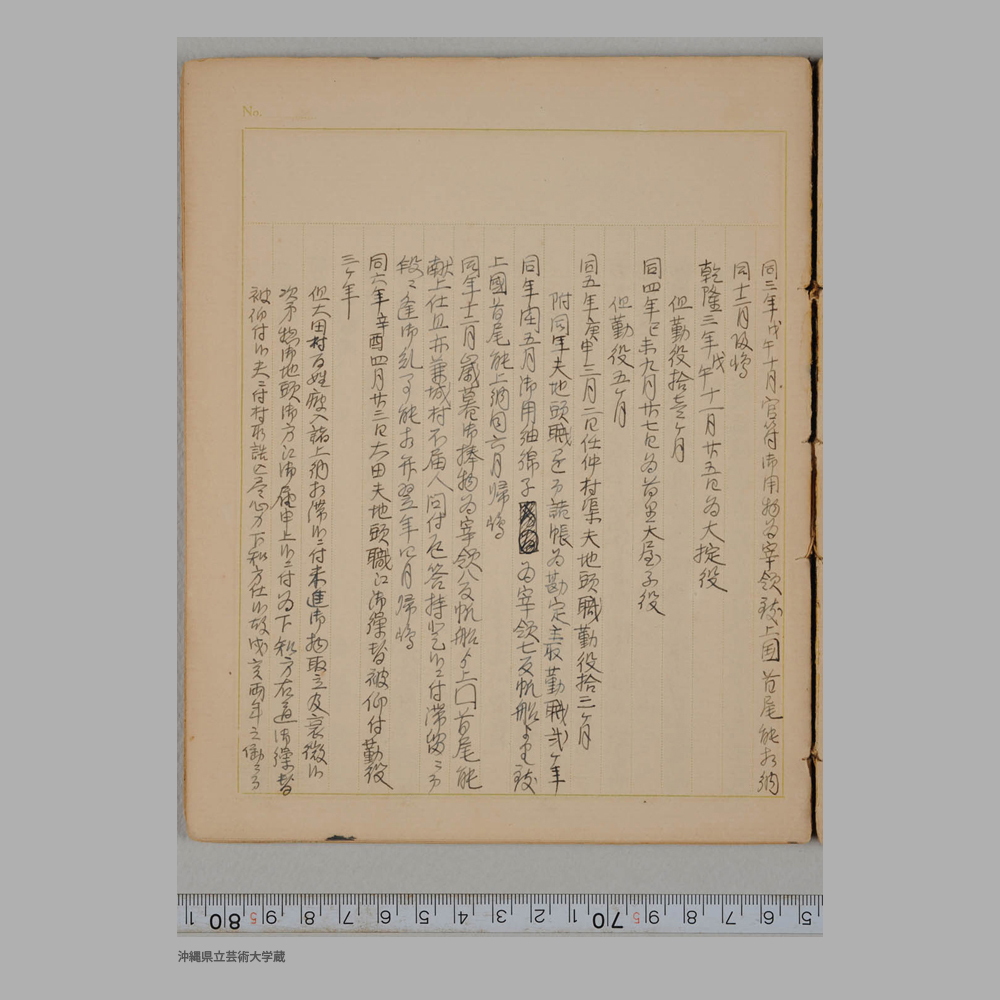 No.
同三年戊午十月官符御用物為宰領致上国首尾能相納
同十二月帰嶋
乾隆三年戊午十一月廿五日為大掟役
但勤役拾壱ヶ月
同四年己未九月廿七日為首里大屋子役
但勤役五ヶ月
同五年庚申三月二日仕仲村渠夫地頭職勤役拾三ヶ月
附同年夫地頭職 為勘定主取勤職弐ヶ年
同年閏五月御用紬綿子 為宰領七反帆船 致
上國首尾能上納同六月帰嶋
同年十二月歳暮御捧物為宰領八反帆船より上口首尾能
献上仕且亦兼城村不届人問付 答持 付滞留ニ而
段々逢御糺 能相 翌年四月帰嶋
同六年辛酉四月廿三日大田夫地頭職江御繰替被仰付勤役
三ヶ年
但大田村百姓疲入諸上納相滞候ニ付未進御物取立及衰微候
次第 御地頭御方江御届申上候ニ付為下知方右通御繰替
被仰付候夫ニ付村 尽心力下知方仕候故 亥両年之働ニ而
80 70
沖縄県立芸術大学蔵